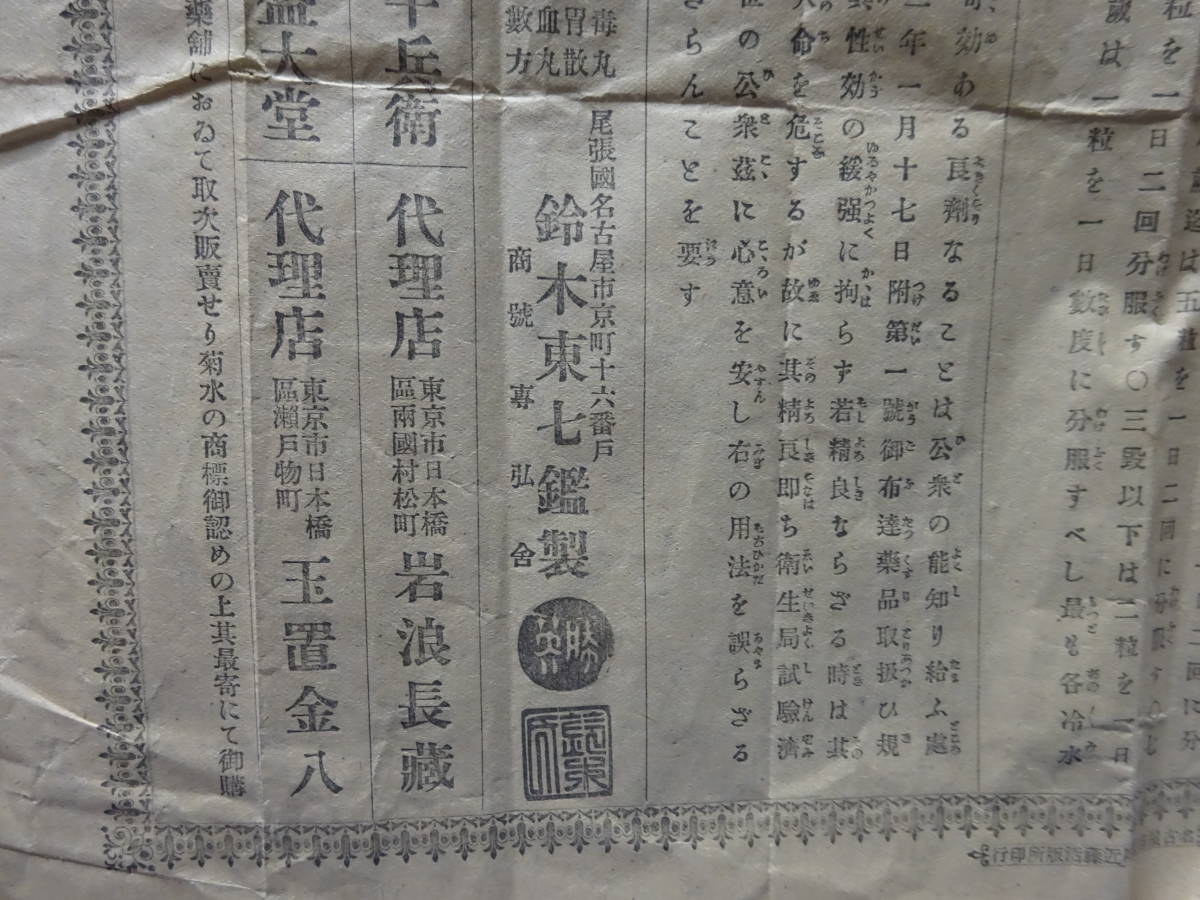 粒を一日
は五粒を一日二回に分服すのじ
一日二回分服す〇三歳以下は二粒を一日
歳は一粒を一日數度に分服すべし最も各冷水
効ある良劑なることは公衆の能知り給ふ處
年一月十七日附第一號御布達藥品取扱ひ規
性効の緩强に拘らす若精良ならざる時は其
命を危するが故に其精良即ち衛生局試驗濟
の公衆茲に心意を安し右の用法を誤らざる
らんことを要す
毒丸
胃散
血丸
數方
尾張國名古屋市京町十六番戸
鈴木東七鑑製
商號專弘舍
兵衛
代理店
東京市日本橋
區兩國村松町
岩浪長藏
大堂
代理店
東京市日本橋
區瀨戸物町
玉置金八
藥舖におゐて取次販賣せり菊水の商標御認めの上其最寄にて御購
近藤活版所印行